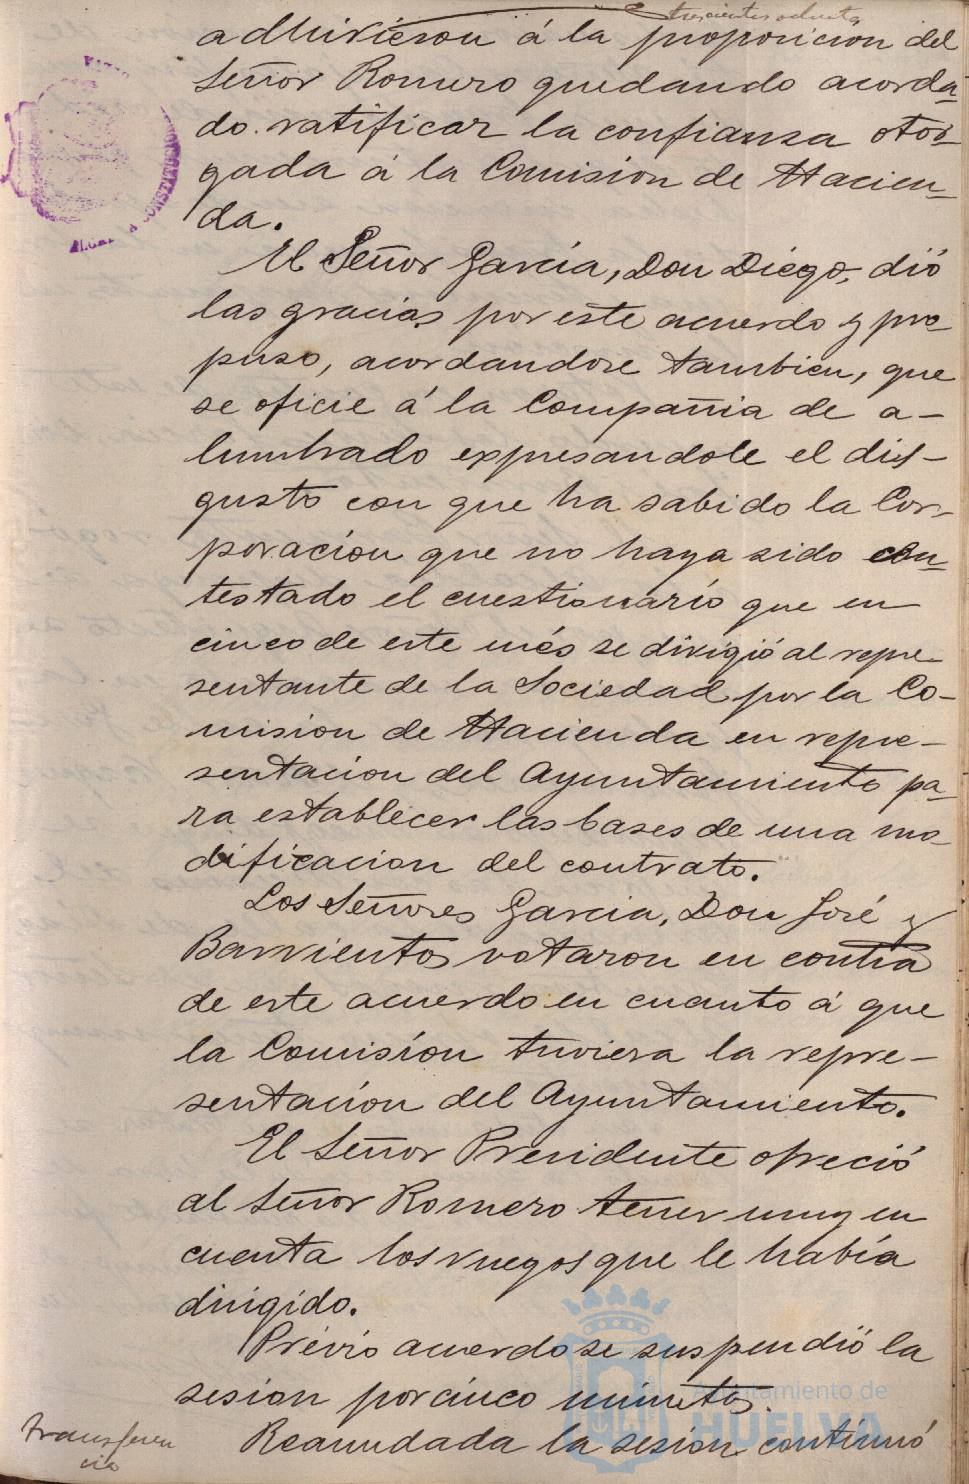 trescientos ochenta
adhirieron á la proposicion del
Señor Romero quedando acorda-
do ratificar la confianza otor-
gada á la Comision de Hacien-
da.
El Señor García, Don Diego, dió
las gracias por este acuerdo y pro-
puso, acordandose tambien, que
se oficie á la Compañia de a-
lumbrado expresandole el dis-
gusto con que ha sabido la Cor-
poración que no haya sido con-
testado el cuestionario que en
cinco de este més se dirigió al repre-
sentante de la Sociedad por la Co-
mision de Hacienda en repre-
sentacion del Ayuntamiento pa-
ra establecer las bases de una mo-
dificacion del contrato.
Los Señores Garcia, Don José y
Barrientos votaron en contra
de este acuerdo en cuanto á que
la Comisión tuviera la repre-
sentación del Ayuntamiento.
El Señor Presidente ofreció
al Señor Romero tener muy en
cuenta los ruegos que le había
dirigido.
Prévio acuerdo se suspendió la
sesion por cinco minutos.
Transferen
cia
Reanudada la sesion continuó
Ayuntamiento de
HUELVA